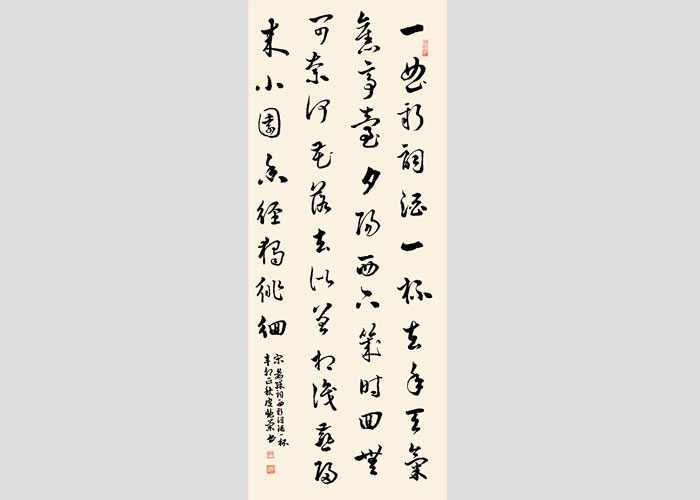 一曲新詞酒一杯去年天氣
舊亭臺夕陽西下幾時回無
可奈何花落去似曾相識燕歸
來小園香徑獨徘徊
宋晏殊詞一曲新詞酒一杯
辛卯正秋 書